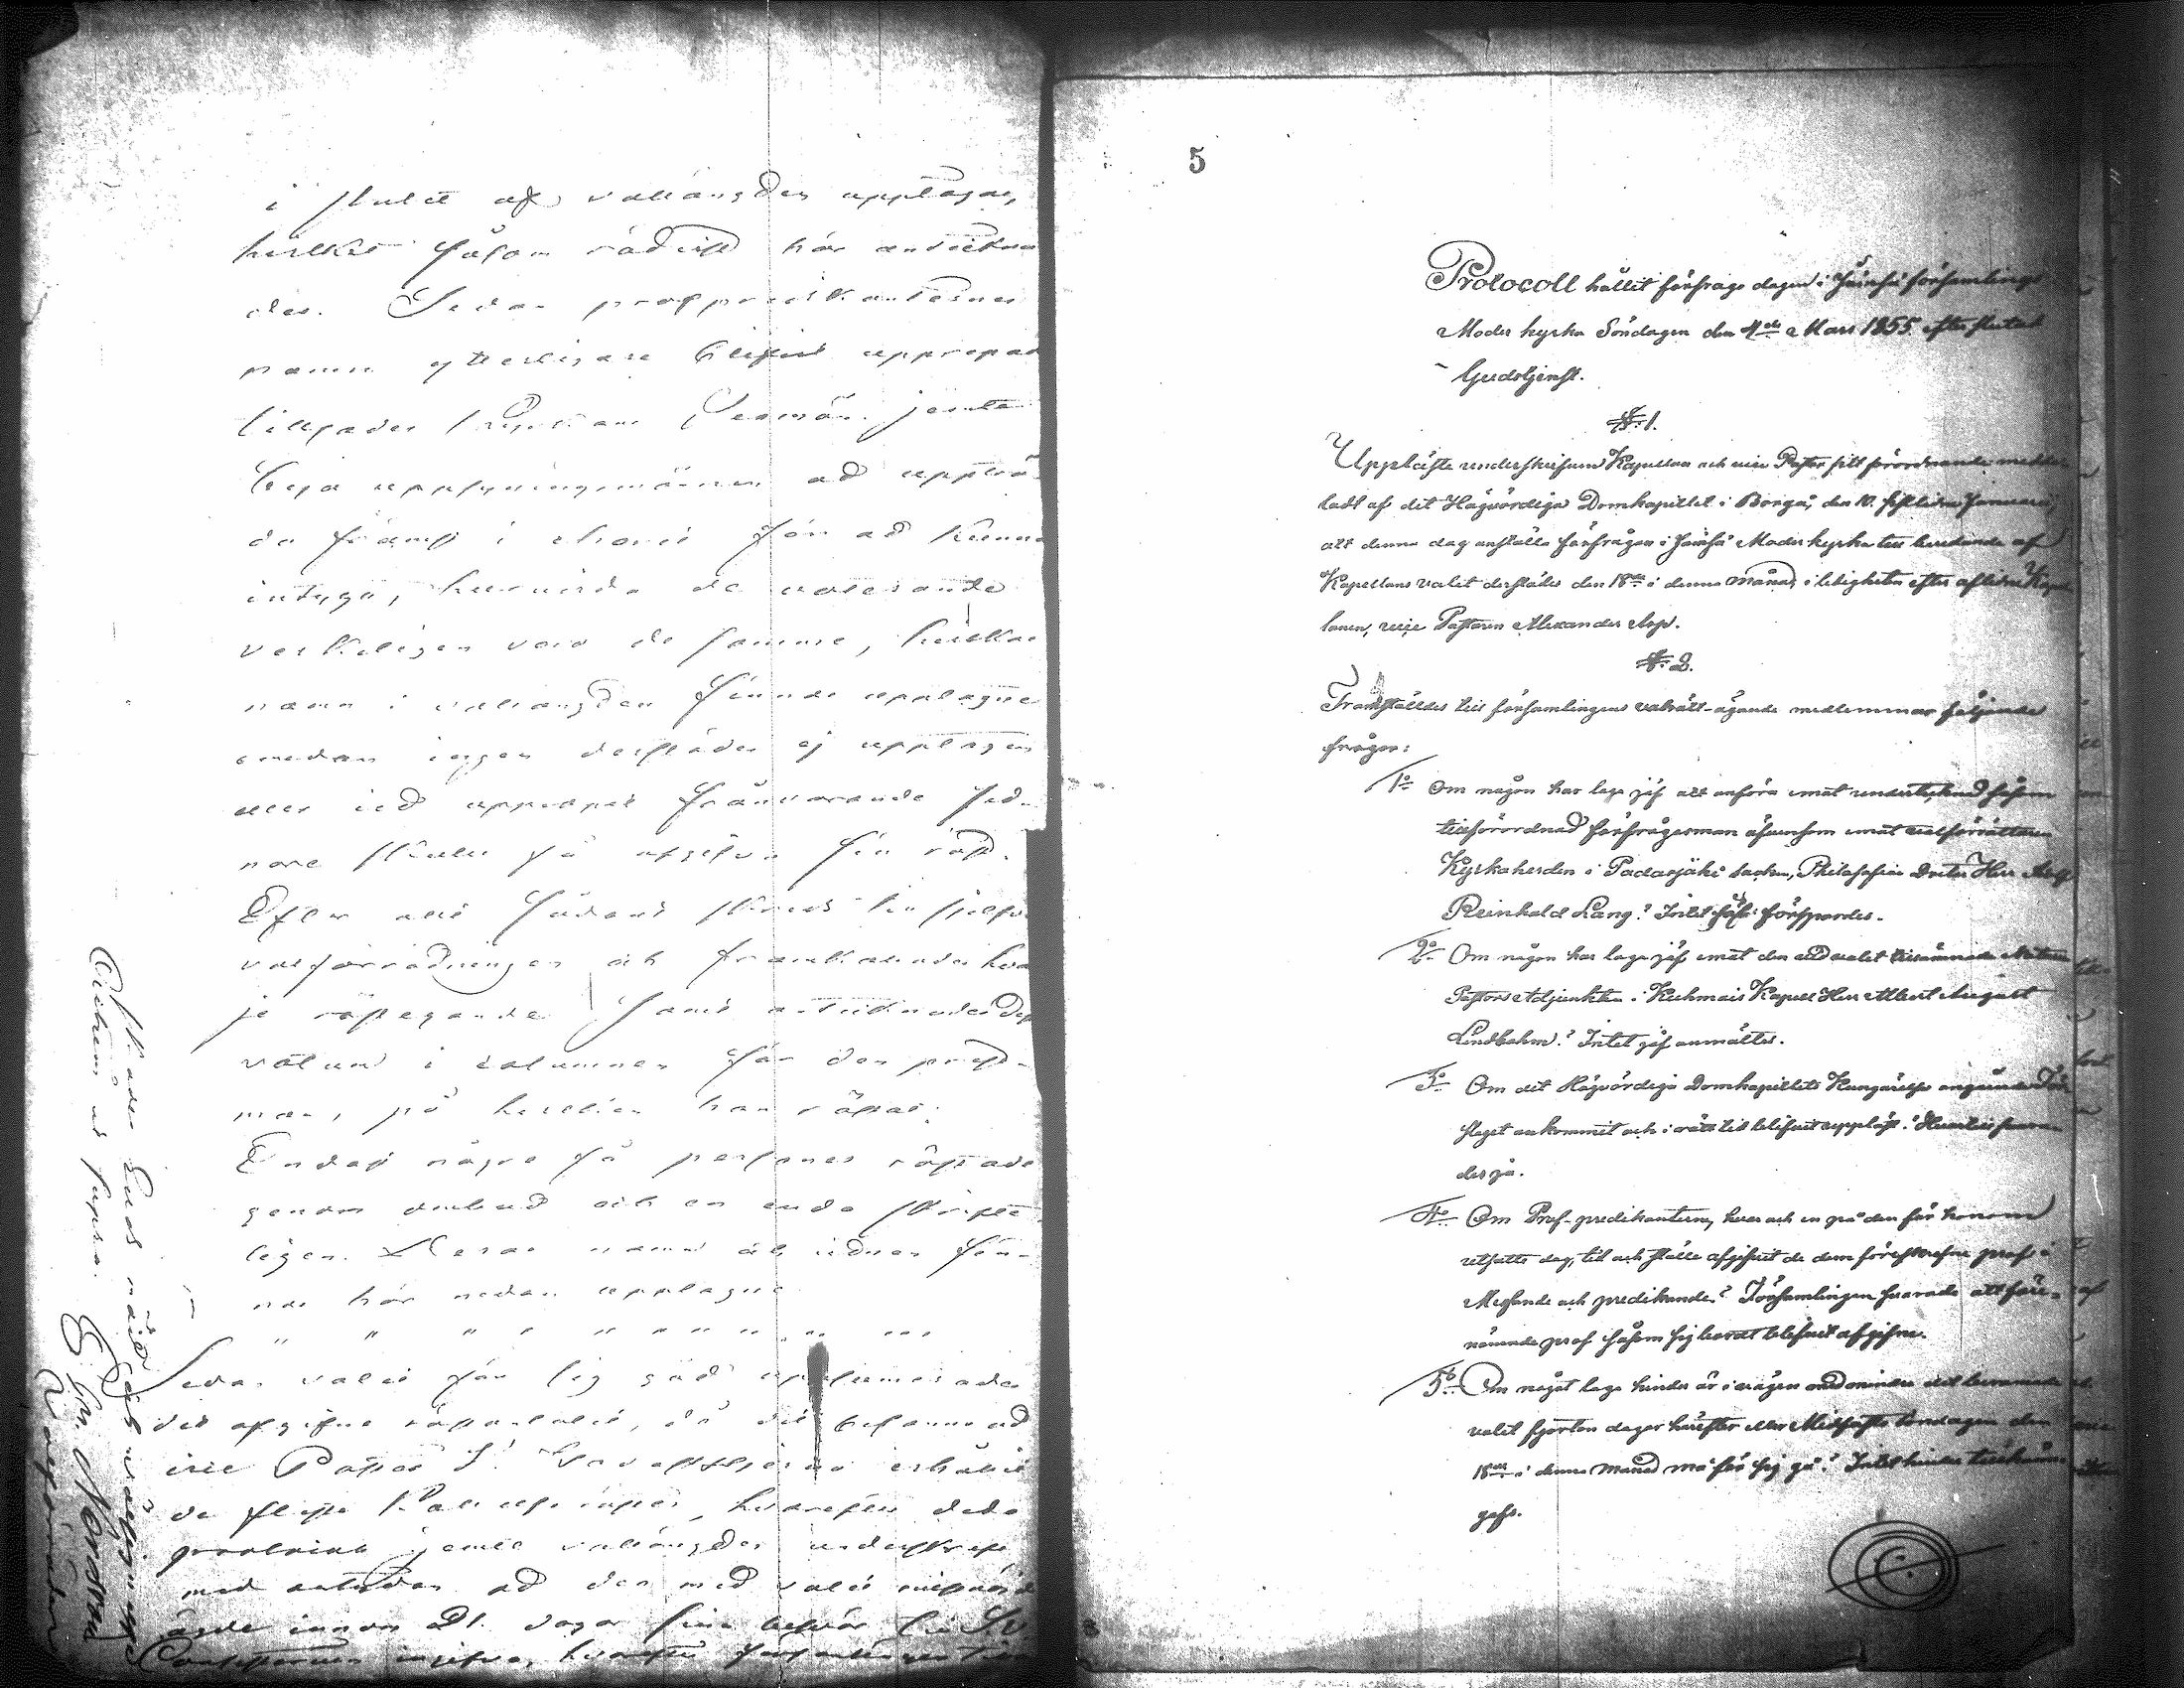 i slutet af vallängden upptagas,
hvilket såsom rådigt här anteckna
des. Sedan profpredikanternes
namn ytterligare blifvit upropad
tillsades jemte
tvga uppsyningsmännen att upträ
da främst i choret för att kunna
intyga, huruvida de voterande
verkeligen voro de samme, hvilkas
namn i vallängden finnas upptagne
emedan ingen derstädes ej upptagen
eller vid uppropet frånvarande sed-
nare skulle få afgifva sin röst.
Efter allt sådant skreds till sjelfva
valförrättningen och framkallades hvar
je röstegande samt antecknades dess
votum i columnen för den prest-
man, på hvilken han röstat.
Endast några få personer röstade
genom ombud och en enda skrifte
ligen. Deras namn och fin-
nas här nedan upptagne
" " " " " " " " " "
Sedan valet för sig gått upsummerades
de afgifne röstetalet, då det befanns att
vice Pastor erhållit
de flesta Kallelse röster, hvarefter detta
protocoll jemte vallängden underskrefs
med antydan att den med valet missnöjd
ägde innom 21 dagar sina besvär till
Consistorium ingifva, hvarefter församlingen
önskades Guds nåd och välsignelse
Actum ut supra.
G. W. Nordm
Valförrättare
5
Protocoll hållit förfrågo dagen i Jämsä församlings
Moder kyrka Söndagen den 4de Mars 1855 efter slutad
Gudstjenst.
§. 1.
Upplästte underskrifven Kapellan och vice Pastor sitt förordnande medde-
ladt af det Högvördiga Domkapitlet i Borgå, den 10. sistledne Januarii,
att denna dag anställa förfrågan i Jämsä Moderkyrka till beredande af
Kapellans valet derstädes den 18de i denna månad, i ledigheten efter aflidne Kapel
lanen, vice Pastoren Alexander Asp.
§. 2.
Framställdes till församlingens valrätt-ägande medlemmar följande
frågor:
1o Om någon har laga jäf att anföra emot undertecknad såsom
tillförordnad förfrågesman äfvensom emot valförrättaren
Kyrkoherden i Padasjoki Socken, Philosophiæ Doctor Herr
Reinhold Lang? Intet jäf försportes.
2o Om någon har laga jäf emot den vid valet tillämnade Notarien
Pastors Adjunkten i Kuhmois Kapell Herr Albert August
Lindbohm? Intet jäf anmältes.
3o Om det Högvördiga Domkapitlets Kungörelse angående För
slaget ankommit och i rätt tid blifvit uppläst? Hvartill svara-
des ja.
4o Om Prof-predikanterne, hvar och en på den för honom
utsatte dag, tid och ställe afgifvit de dem föreskrefne prof i
Messande och predikande? Församlingen svarade att före-
nämnde prof såsom sig bordt blifvit afgifne.
5o Om något laga hinder är i vägen med mindre det beramade
valet fjorton dagar härefter eller Midfasto söndagen den
18de i denna månad må för sig gå? Intet hinder tillkänna
gafs.